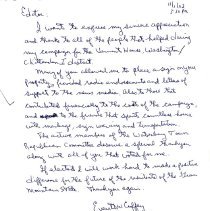 Editor,
I want to express my sincere appreciation
and thanks to all of the people that helped during
my campaign for the Vermont House, Washington/
Chittenden 1 district.
Many of you allowed me to place a sign on your
property, provided radio endorsements and letters of
support to the news media. Also those that
contributed financially to the cost of the campaign,
and to the friends that spent countless hours
with mailings, sign waving and transportation.
The active members of the Waterbury Town
Republican Committee deserve a special thank you
along with all of you that voted for me.
If elected I will work hard to make a positive
difference for the future of the residents of the Green
Mountain State. Thank you again.
Everett Coffey